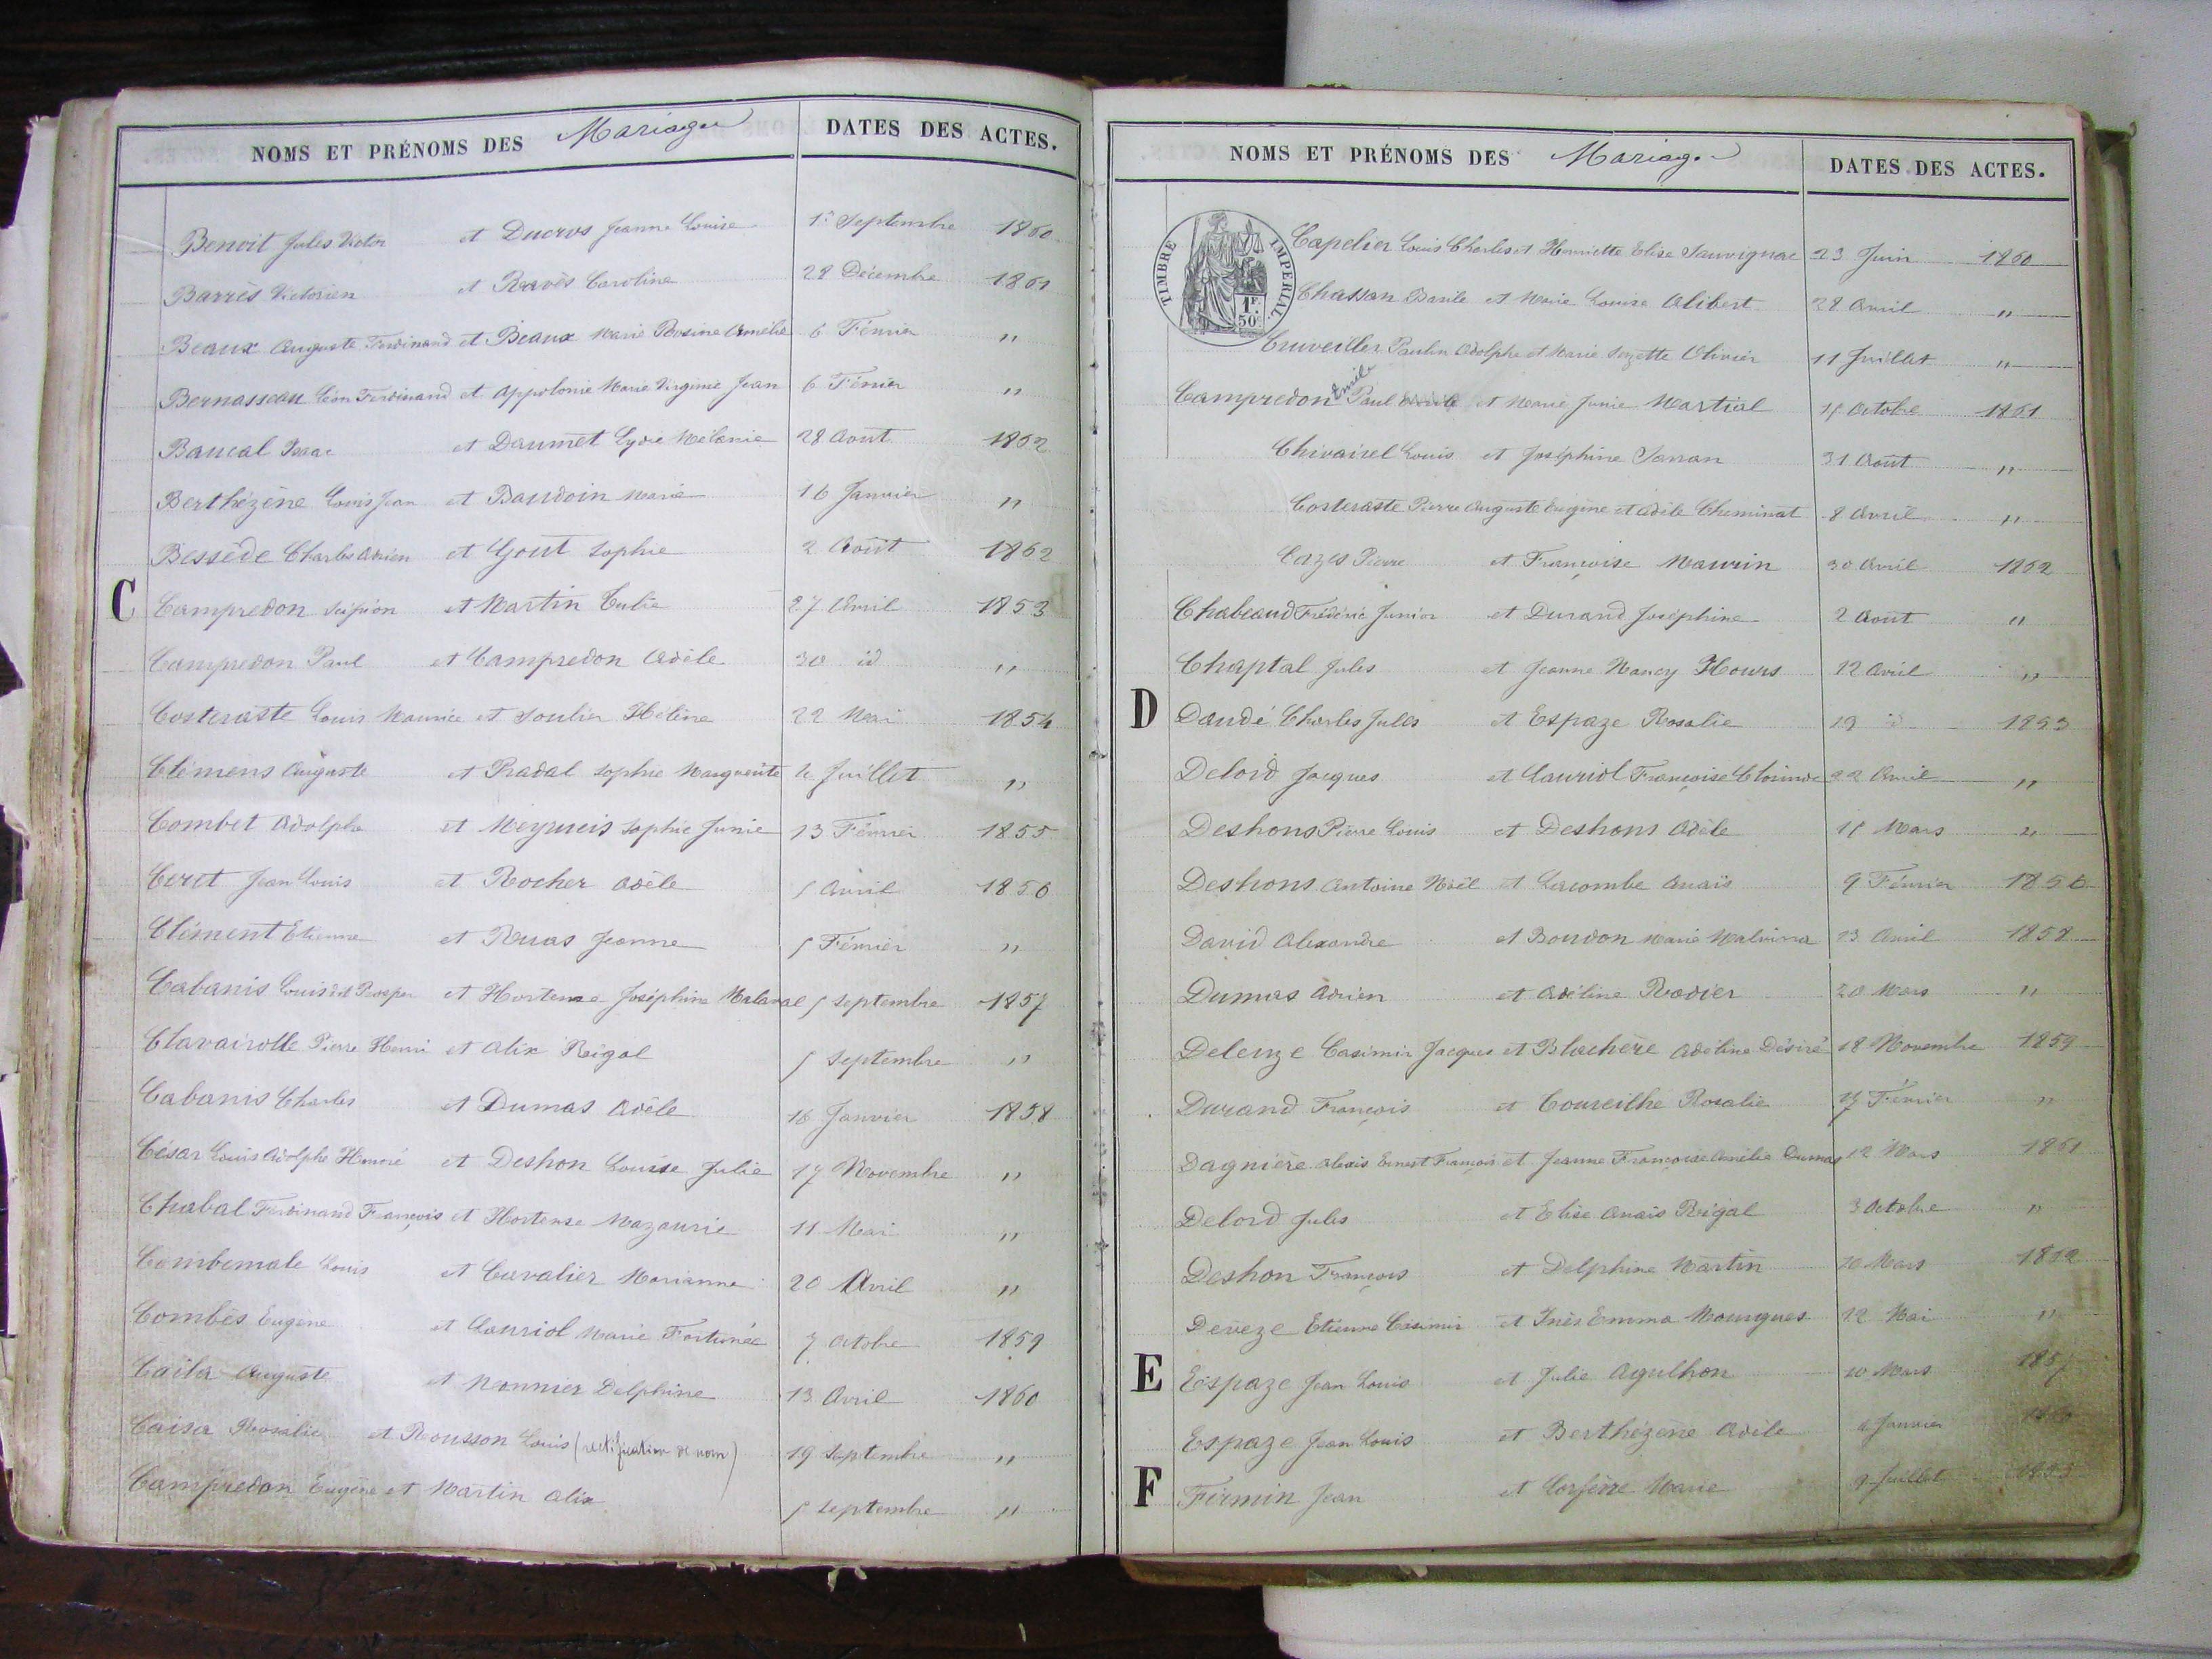 NOMS ET PRÉNOMS DES Mariages DATES DES ACTES.
Benoit Jules Victor et Ducros Jeanne Louise 1er Septembre 1860
Barrès Victorien et Ravès Caroline 28 Décembre 1861
Beaux Auguste Ferdinand et Beaux Marie Rosine Amélie 6 Février "
Bernasseau Léon Ferdinand et Appolonie Marie Virginie Jean 6 Février "
Baucal Isaac et Daumet Lydie Mélanie 28 Aout 1862
Berthézène Louis Jean et Baudoin Marie 16 Janvier "
Bessède Charles Adrien et Gout Sophie 2 Août 1862
C Campredon Scipion et Martin Eulie 27 Avril 1853
Campredon Paul et Campredon Adèle 30 id "
Costeraste Louis Maurice et Soulier Hélène 22 Mai 1854
Clémens Auguste et Pradal Sophie Marguerite 4 Juillet "
Combet Adolphe et Meyrueis Sophie Junie 13 Février 1855
Ceret Jean Louis et Rocher Adèle 5 Avril 1856
Clément Etienne et Ruas Jeanne 5 Février "
Cabanis Louis dit Prosper et Hortense Joséphine Malaval 5 Septembre 1857
Clavairolle Pierre Henri et Alix Reigal 5 Septembre "
Cabanis Charles et Dumas Adèle 16 Janvier 1858
César Louis Adolphe Honoré et Deshon Louise Julie 17 Novembre "
Chabal Ferdinand François et Hortense Mazauric 11 Mai "
Combemale Louis et Cavalier Marianne 20 Avril "
Combes Eugène et Lauriol Marie Fortunée 7 Octobre 1859
Caila Auguste et Monnier Delphine 13 Avril 1860
Caisa Rosalie et Rousson Louis (rectification de nom) 19 Septembre "
Campredon Eugène et Martin Alix 5 Septembre "
NOMS ET PRÉNOMS DES Mariages DATES DES ACTES.
TIMBRE IMPERIAL 1F. 50c.
Capelier Louis Charles et Henriette Elise Sauvignac 23 Juin 1860
Chassan Basile et Marie Louise Alibert 28 Avril "
Cruveiller Paulin Adolphe et Marie Suzette Olivier 11 Juillet "
Campredon Emile Paul et Marie Junie Martial Octobre 1861
Chivairel Louis et Joséphine Sarran 31 Août "
Costeraste Pierre Auguste Eugène et Adèle Cheminat 8 Avril "
Cazes Pierre et Françoise Maurin 30 Avril 1862
Chabeaud Frédéric Junior et Durand Joséphine 2 Aout "
Chaptal Jules et Jeanne Nancy Hours 12 Avril "
D Daudé Charles Jules et Espaze Rosalie 19 id 1853
Delord Jacques et Lauriol Françoise Clorinde 22 Avril "
Deshons Pierre Louis et Deshons Adèle Mars "
Deshons Antoine Noël et Lacombe Anaïs 9 Février 1856
David Alexandre et Boudon Marie Malvina 23 Avril 1858
Dumas Adrien et Adéline Rodier 20 Mars "
Deleuze Casimir Jacques et Blachère Adéline Désiré 18 Novembre 1859
Durand François et Coureilhe Rosalie 17 Février "
Dagnière Alexis Ernest François et Jeanne Françoise Amélie Dumas 12 Mars 1861
Delord Jules et Elise Anaïs Reigal 3 Octobre "
Deshon François et Delphine Martin Mars 1862
Devèze Etienne Casimir et Inès Emma Mourgues 12 Mai "
E Espaze Jean Louis et Julie Agulhon 10 Mars 1857
Espaze Jean Louis et Berthézène Adèle Janvier
F Firmin Jean et Marie 9 Juillet